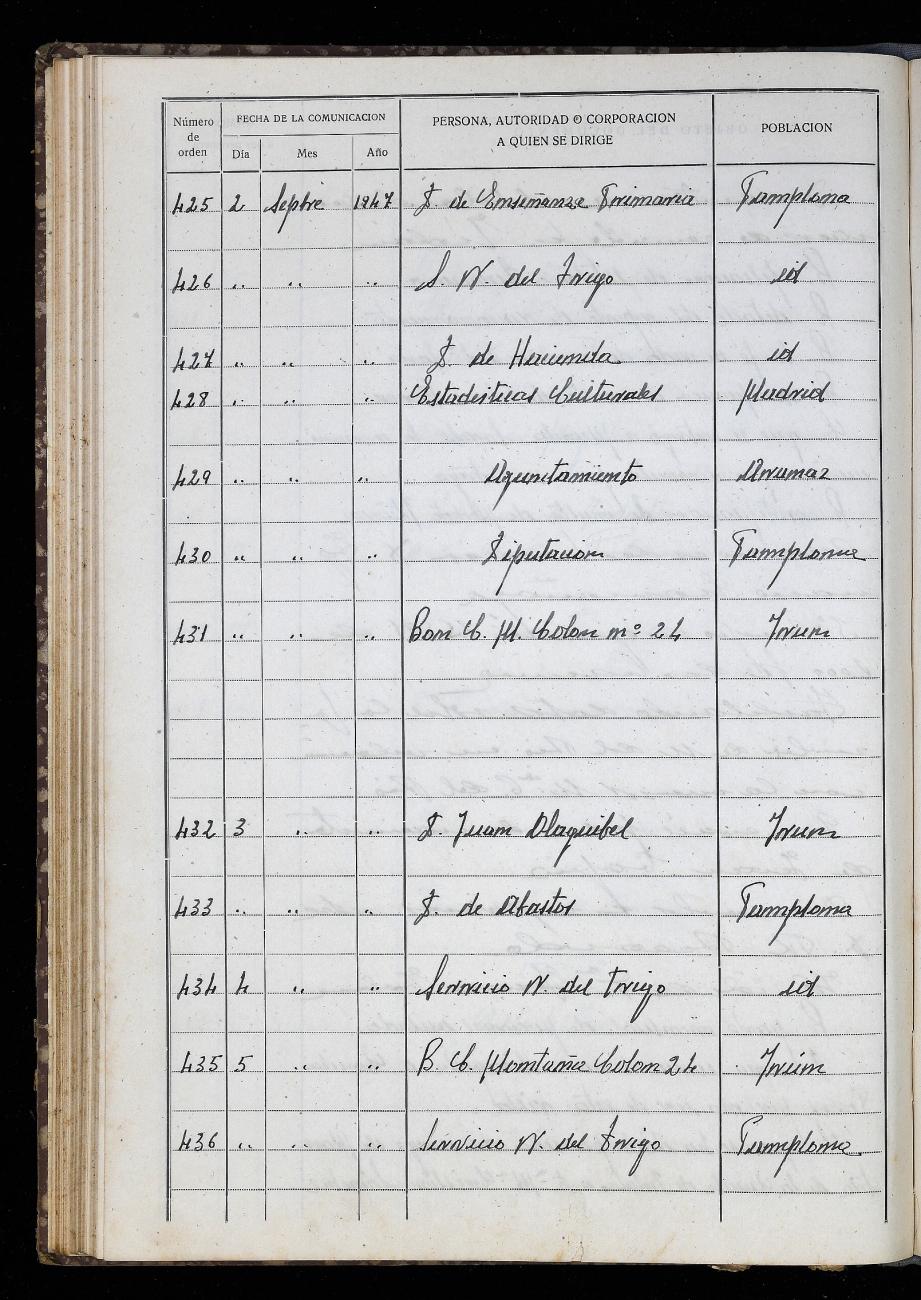 Número de orden | FECHA DE LA COMUNICACION | PERSONA, AUTORIDAD O CORPORACION A QUIEN SE DIRIGE | POBLACION
Día | Mes | Año
425 2 Septre 1947 D. de Enseñanza Primaria Pamplona
426 .. .. .. S. N. del Trigo id
427 .. .. .. D. de Hacienda id
428 .. .. .. Estadisticas Culturales Madrid
429 .. .. .. Ayuntamiento
430 .. .. .. Diputacion Pamplona
431 .. .. .. Bon C. M. Colon nº 24 Irun
432 3 .. .. D. Juan Olaquibel Irun
433 .. .. .. D. de Abastos Pamplona
434 4 .. .. Servicio N. del Trigo id
435 5 .. .. B. C. Montaña Colon 24 Irún
436 .. .. .. Servicio N. del Trigo Pamplona.